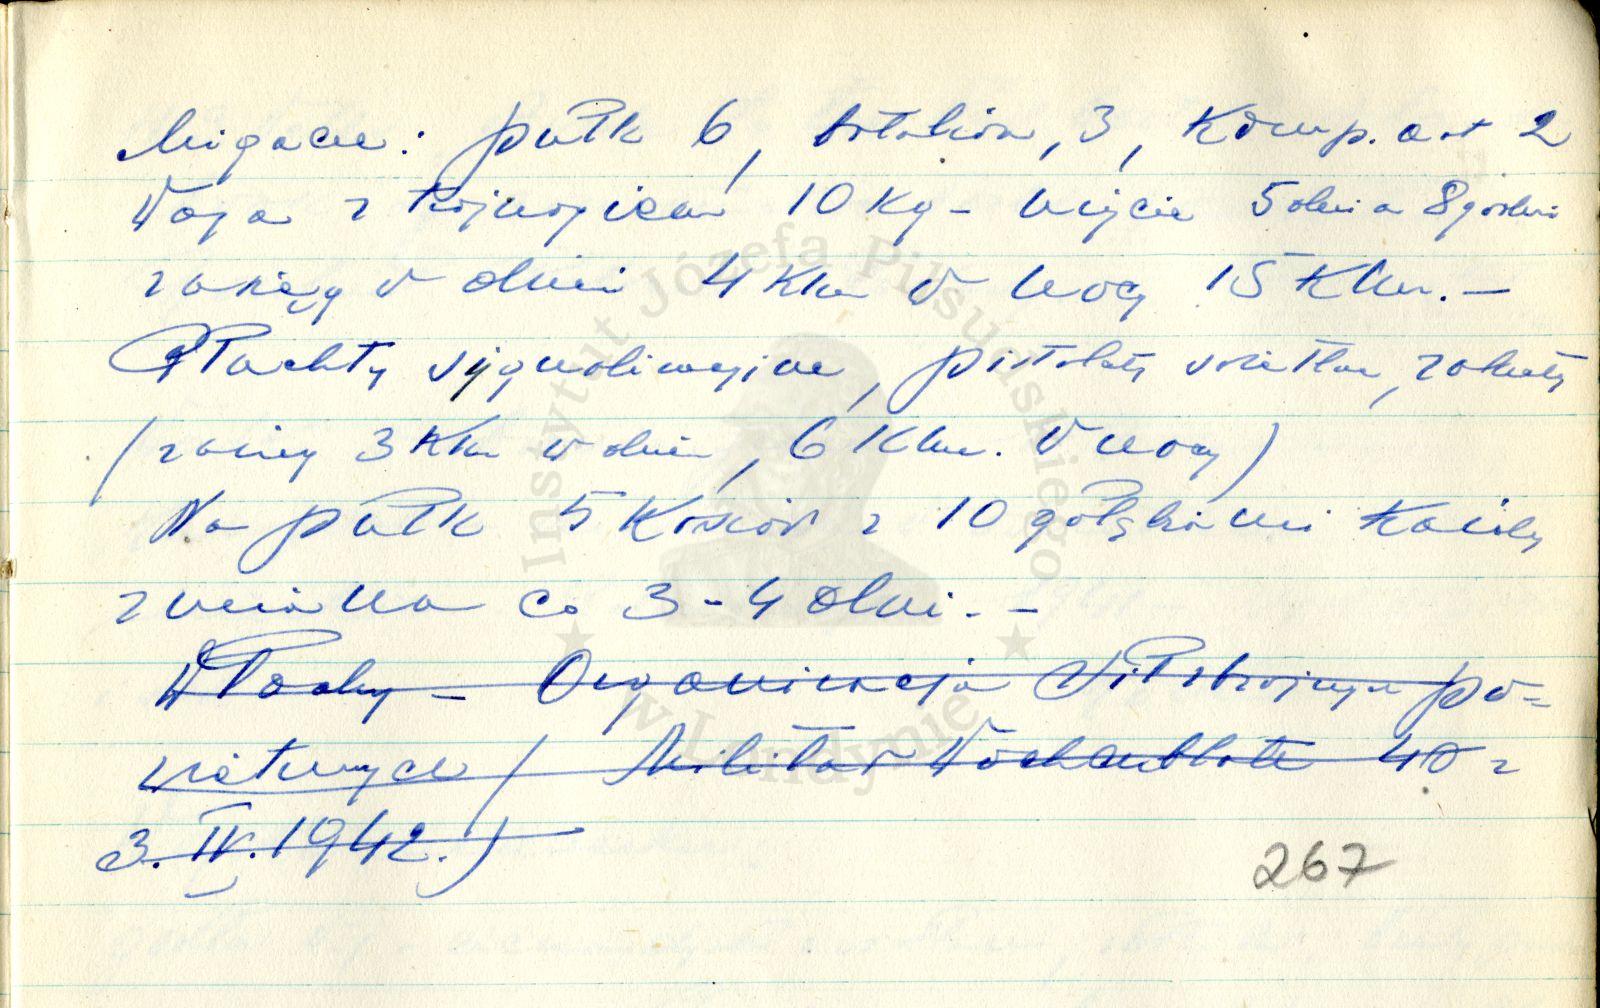 Migacze: pułk 6, batalion, 3, Komp. a⁠t 2
Waga z trójnogiem 10 kg – użycie 5 dni a 8 godzin
zasięg w dnii 4 Km w nocy 15 Km. –
Płachty sygnalizacyjne, pistolety świetlne, rakiety
(zasięg 3 Km w dnie, 6 Km. w nocy)
Na pułk 5 Koszów z 10 gołębiami każdy
zmiana co 3-4 dni. –
Włochy – Organizacja sił zbrojnych po=
wietrznych (Militär Wochenblatt 40 z
3. IV. 1942.)
267
Instytut Józefa Piłsudskiego
w Londynie